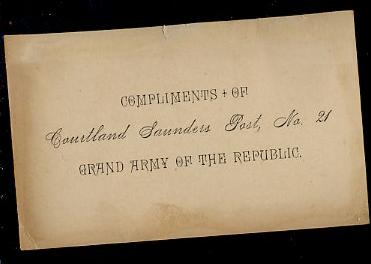 COMPLIMENTS + OF
Courtland Saunders Post, No. 21
GRAND ARMY OF THE REPUBLIC.